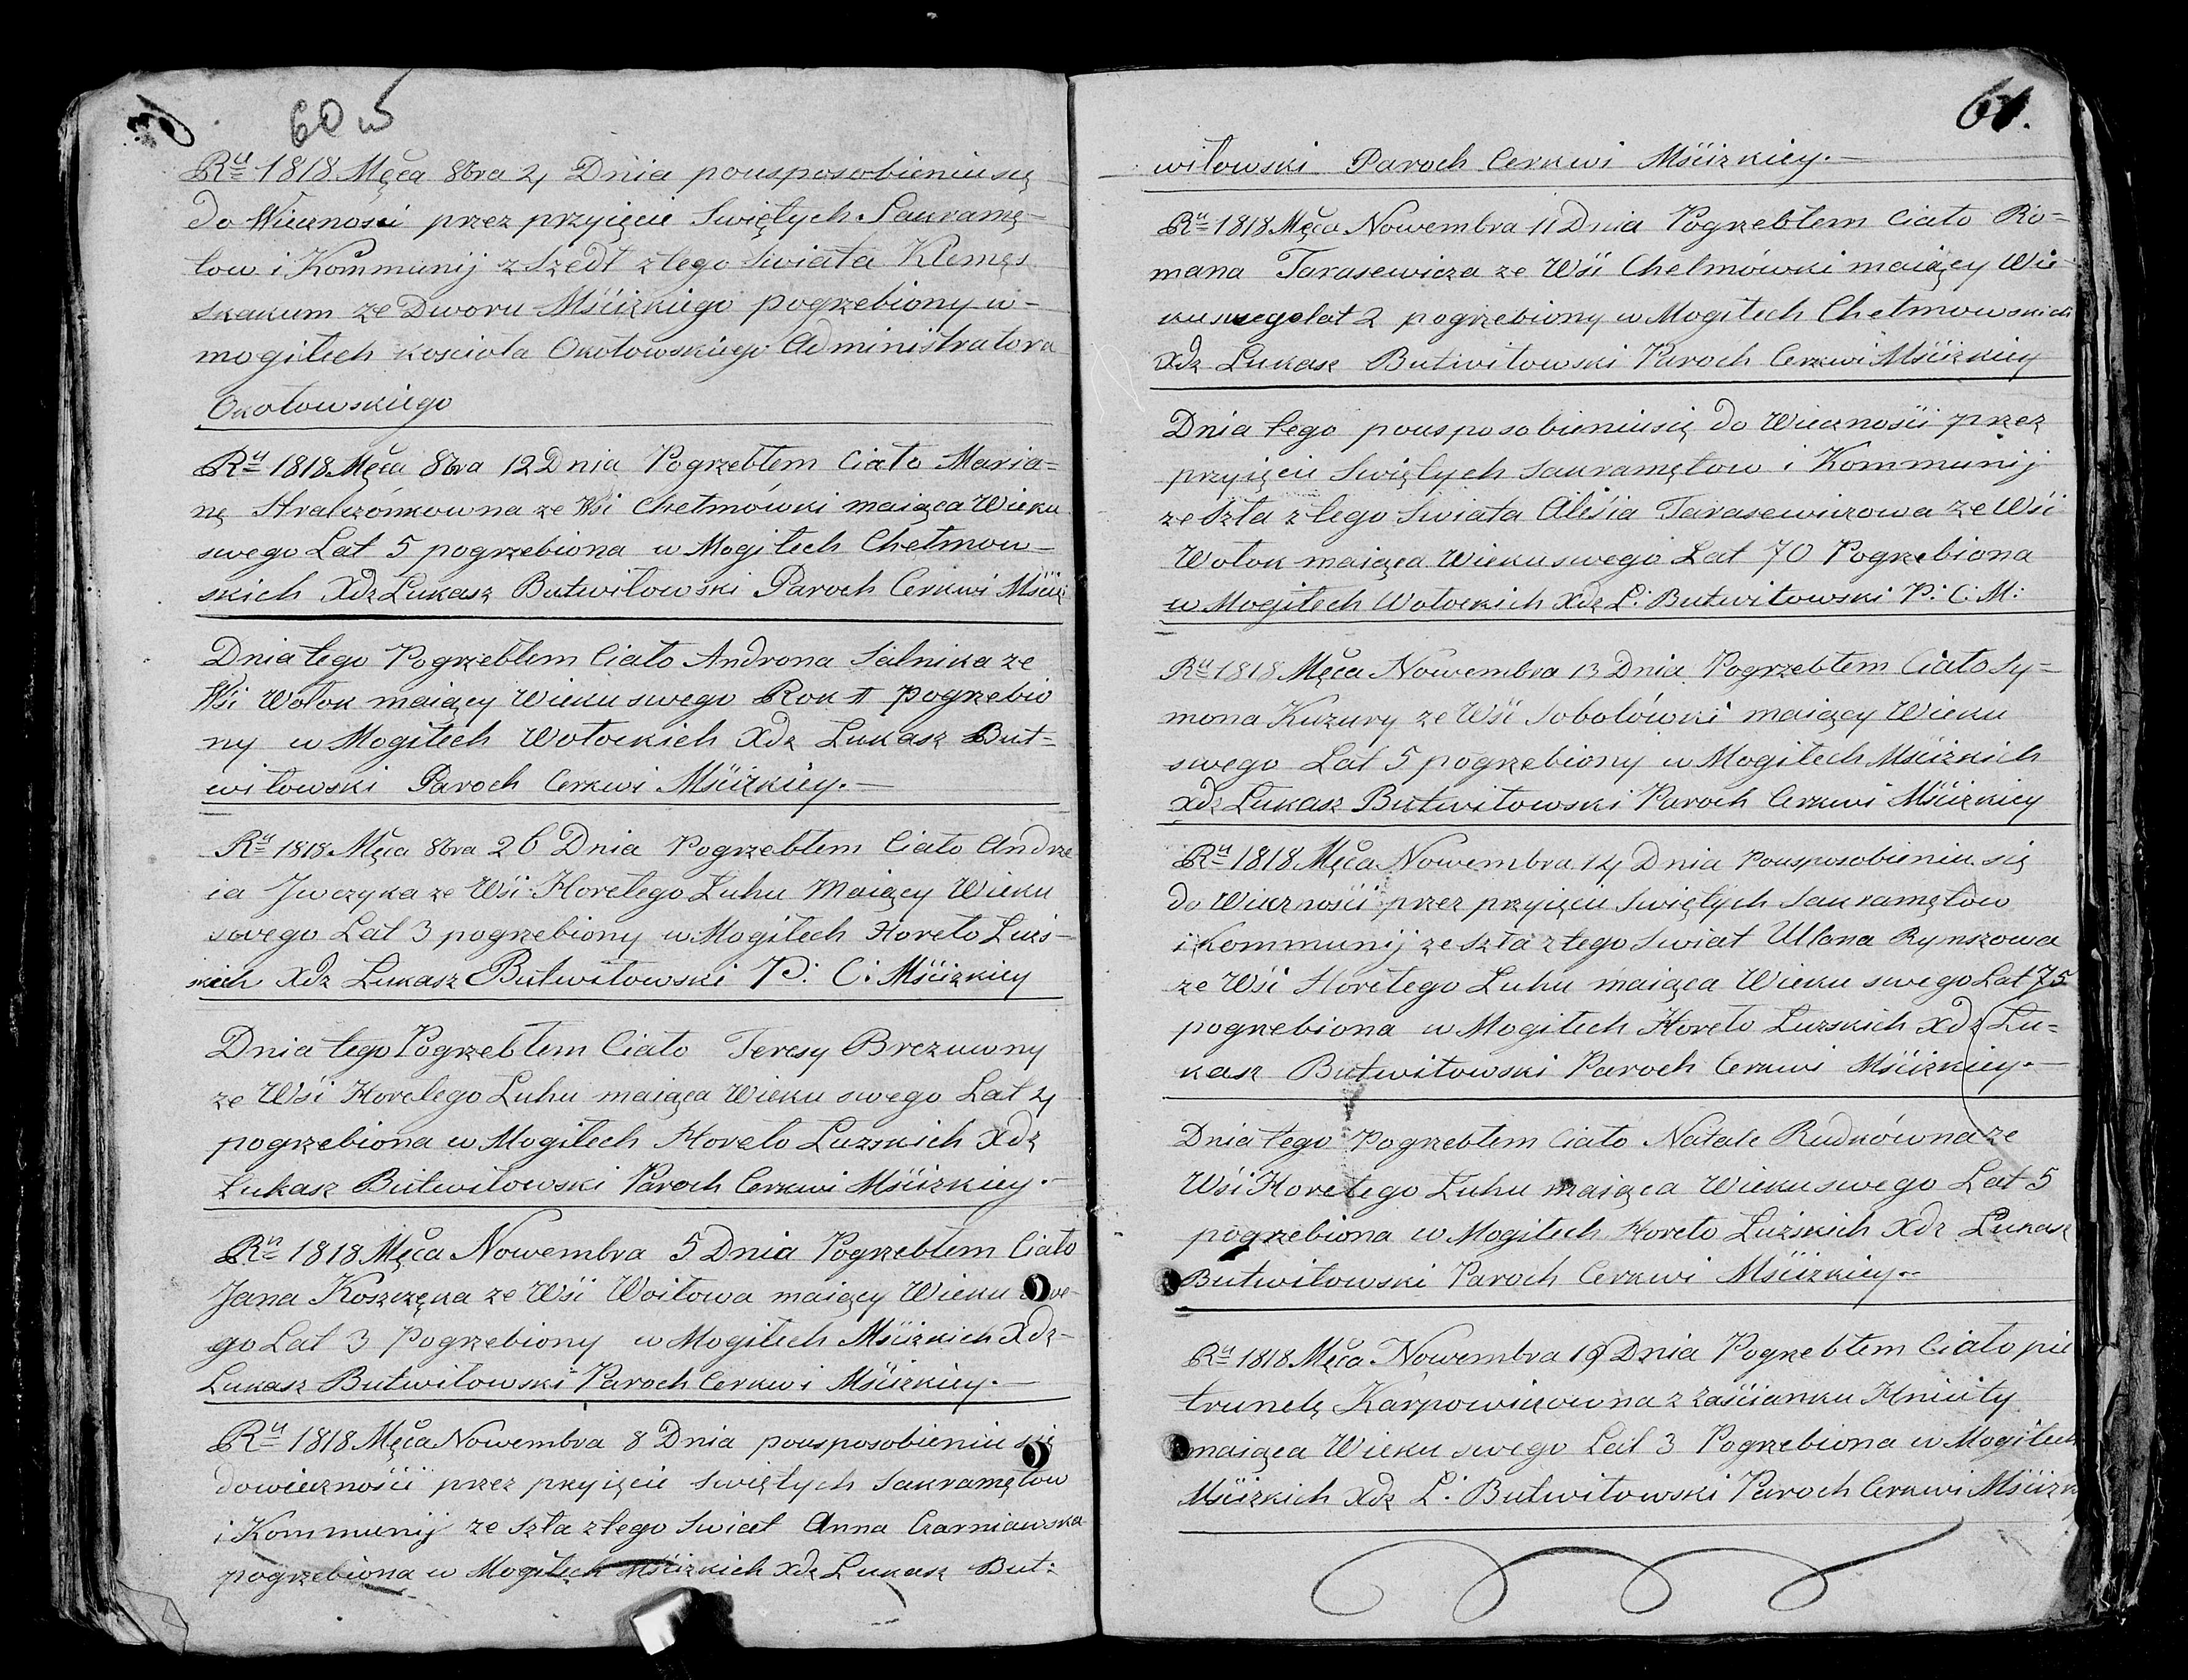 60 w
Rᵘ 1818 Męca 8bra 4 Dnia pousposobieniu się
do Wiecznosci przez przyięcie Swiętych Sakramę-
tow i Kommunij z Szedł ztego Swiata Klemęs
Skakum ze Dworu Mścizkiego pogrzebiony w-
mogiłech kosciola Okołowskiego Administratora
Okołowskiego
Rᵘ 1818 Męca 8bra 12 Dnia Pogrzebłem Ciało Maria=
nę Hralczónkowna ze Wsi Chełmówki maiąca Wieku
swego Lat 5 pogrzebiona w Mogiłech Chełmow-
skich Xdz Lukasz Butwiłowski Paroch Cerkwi Mściz
Dnia tego Pogrzebłem Ciało Androna Salnika ze
Wśi Wołok maiący Wieku swego Rok 1 pogrzebio
ny w Mogiłech Wołockich Xdz Lukasz But=
wiłowski Paroch Cerkwi Mścizkiey.—
Rᵘ 1818 Męca 8bra 26 Dnia Pogrzebłem Ciało Andrze
ia Jwczyka ze Wśi Horełego Luhu Maiący Wieku
swego Lat 3 pogrzebiony w Mogiłech Horeło Luzs-
kich Xdz Lukasz Butwiłowski P: C: Mścizkiey
Dnia tego Pogrzebłem Ciało Teresy Brezuwny
ze Wśi Horelego Luhu maiąca Wieku swego Lat 4
pogrzebiona w Mogiłech Horeło Luzskich Xdz
Łukasz Butwiłowski Paroch Cerkwi Mścizkiey.—
Rᵘ 1818 Męca Nowembra 5 Dnia Pogrzebłem Ciało
Jana Koszczęka ze Wśi Woiłowa maiący Wieku swe-
go Lat 3 Pogrzebiony w Mogiłech Mścizkich Xdz-
Lukasz Butwiłowski Paroch Cerkwi Mścizkiey.—
Rᵘ 1818 Męca Nowembra 8 Dnia pousposobieniu się
dowiecznośći przez pryięcie swiętych Sakramętow
i Kommunij ze szła ztego Swiat Anna Czarniawska
pogrzebiona w Mogiłech Mścizkich Xdz Lukasz But:
61.
wiłowski Paroch Cerkwi Mścizkiey.—
Rᵘ 1818 Męca Nowembra 11 Dnia Pogrzebłem Ciało Ro=
mana Tarasewicza ze Wśi Chelmówki maiący Wie
ku swego lat 2 pogrzebiony w Mogiłech Chełmowskich
Xdz Lukasz Butwiłowski Paroch Cerkwi Mścizkiey
Dnia tego pousposobieniusię do Wiecznośći przez
przyięcie Swiętych Sakramętow i Kommunij
ze Szła ztego Swiata Aleśia Tarasewiczowa ze Wśi
Wołok maiąca Wieku swego Lat 70 Pogrzebiona
w Mogiłech Wołockich Xdz L: Butwiłowski P: C: M:
Rᵘ 1818 Męca Nowembra 13 Dnia Pogrzebłem Ciało Sy=
mona Kuzury ze Wśi Sobolówki maiący Wieku
swego Lat 5 pogrzebiony w Mogiłech Mścizkich
Xdz Lukasz Butwiłowski Paroch Cerkwi Mścizkiey
Rᵘ 1818 Męca Nowembra 14 Dnia Pousposobieniu się
do Wiecznośći przez przyięcie Swiętych Sakramętow
i Kommunij ze szła ztego Swiat Ullana Rymszowa
ze Wśi Horełego Luhu maiąca Wieku swego Lat 75
pogrzebiona w Mogiłech Horeło Luzskich Xdz Lu=
kasz Butwiłowski Paroch Cerkwi Mścizkiey.—
Dnia tego Pogrzebłem Ciało Natale Rudkówna ze
Wśi Horełego Luhu maiąca Wieku swego Lat 5
pogrzebiona w Mogiłech Horeło Luzskich Xdz Lukasz
Butwiłowski Paroch Cerkwi Mścizkiey.—
Rᵘ 1818 Męca Nowembra 19 Dnia Pogrzebłem Ciało pie
trunelę Karpowiczowna z zaścianku Hniuty
maiąca Wieku swego Lat 3 Pogrzebiona w Mogiłech
Mścizkich Xdz L: Butwiłowski Paroch Cerkwi Mścizk